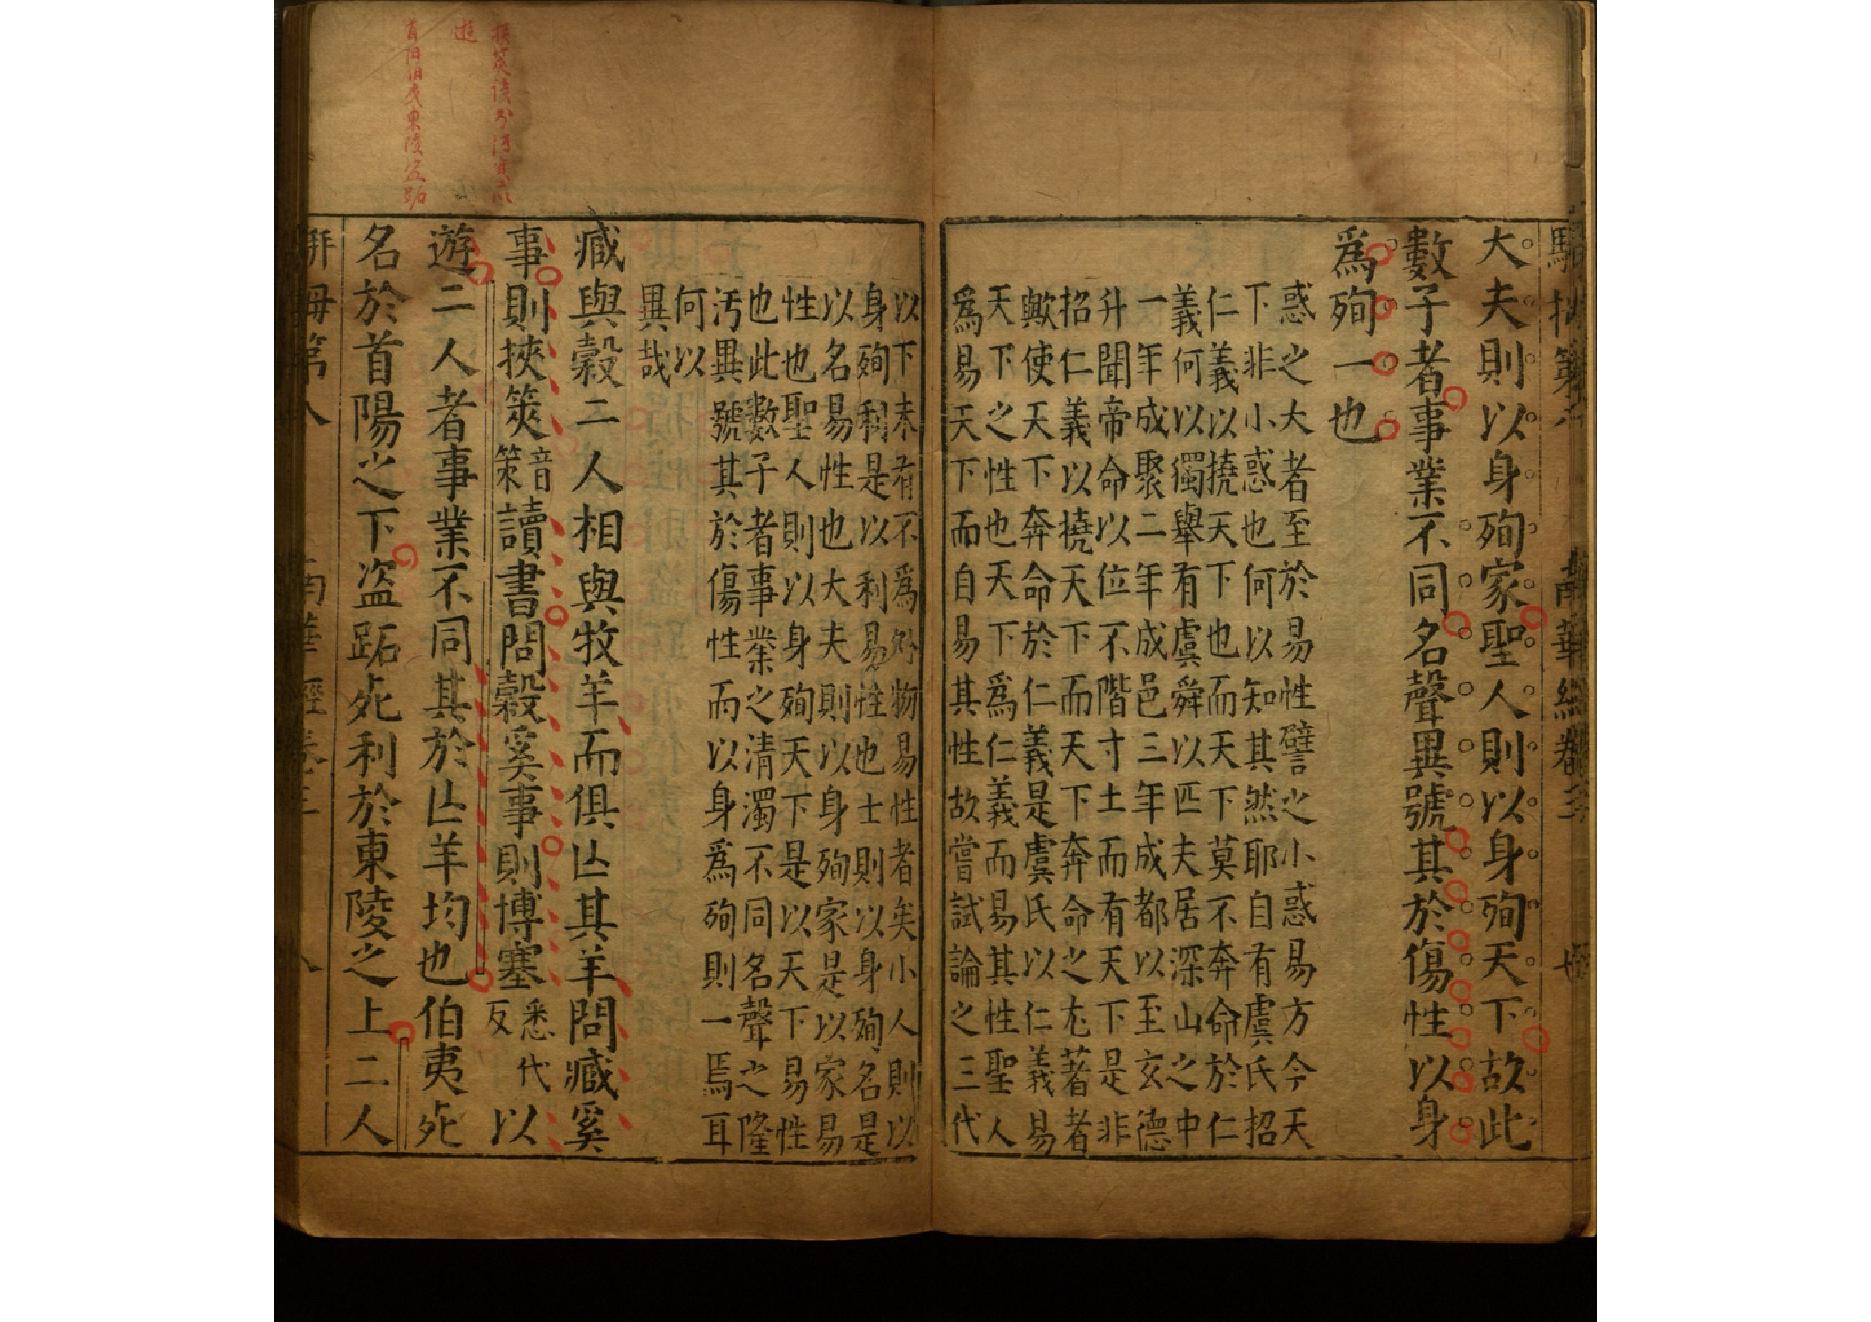 大夫則以身殉家聖人則以身殉天下故此
數子者事業不同名聲異號其於傷性以身
爲殉一也
惑之大者至於易性譬之小惑易方今天
下非小惑也何以知其然耶自有虞氏招
仁義以撓天下也而天下莫不奔命於仁
義何以獨舉有虞舜以匹夫居深山之中
一年成聚二年成邑三年成都以至玄德
升聞帝命以位不階寸土而有天下是非
招仁義以撓天下而天下奔命之尤著者
歟使天下奔命於仁義是虞氏以仁義易
天下之性也天下爲仁義而易其性聖人
爲易天下而自易其性故嘗試論之三代
以下未有不爲外物易性者矣小人則以
身殉利是以利易性也士則以身殉名是
以名易性也大夫則以身殉家是以家易
性也聖人則以身殉天下是以天下易性
也此數子者事業之清濁不同名聲之隆
汚異號其於傷性而以身爲殉則一焉耳
何以
異哉
臧與穀二人相與牧羊而俱亾其羊問臧奚
事則挾筴音策讀書問穀奚事則博塞悉代反以
遊二人者事業不同其於亾羊均也伯夷死
名於首陽之下盗跖死利於東陵之上二人
駢拇第八 南華經卷三
遊
首陽伯夷東陵盜跖